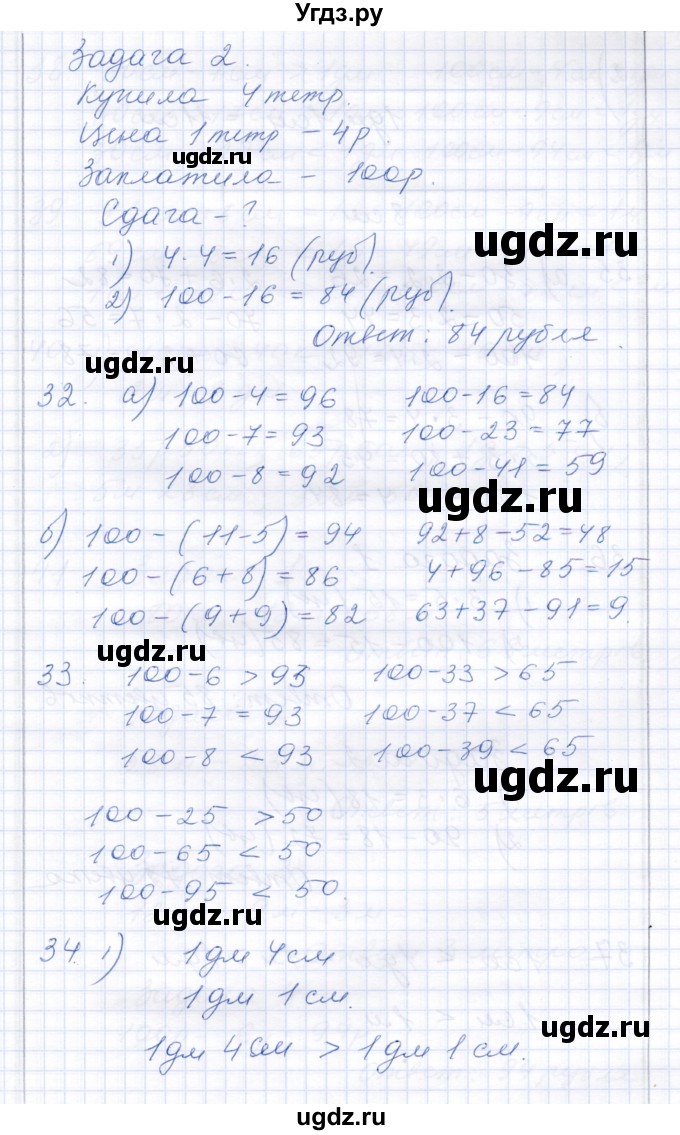 Угдз.ру
Задача 2.
Купила 4 тетр.
Цена 1 тетр - 4 р.
ugdz.ru
Заплатила - 100 р.
Сдача - ?
ugdz.ru
1) 4 · 4 = 16 (руб).
2) 100 - 16 = 84 (руб).
Ответ: 84 рубля.
ugdz.ru
32. а) 100 - 4 = 96 100 - 16 = 84
100 - 7 = 93 100 - 23 = 77
100 - 8 = 92 100 - 41 = 59
ugdz.ru
б) 100 - (11 - 5) = 94 92 + 8 - 52 = 48
100 - (6 + 8) = 86 4 + 96 - 85 = 15
100 - (9 + 9) = 82 63 + 37 - 91 = 9.
ugdz.ru
33. 100 - 6 > 93 100 - 33 > 65
100 - 7 = 93 100 - 37 < 65
100 - 8 < 93 100 - 39 < 65
ugdz.ru
100 - 25 > 50
100 - 65 < 50
100 - 95 < 50.
ugdz.ru
34. 1) 1 дм 4 см
1 дм 1 см.
ugdz.ru
1 дм 4 см > 1 дм 1 см.
ugdz.ru